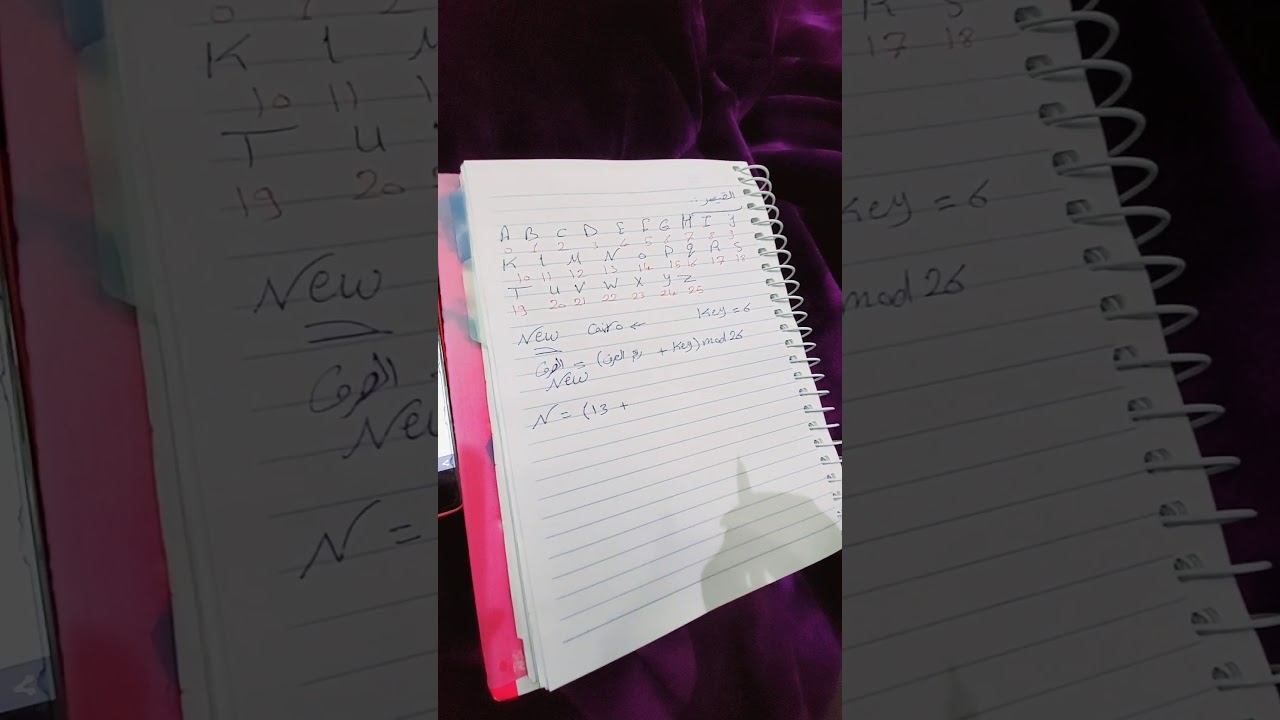 القيصر :
A B C D E F G H I J
0 1 2 3 4 5 6 7 8 9
K L M N O P Q R S
10 11 12 13 14 15 16 17 18
T U V W X Y Z
19 20 21 22 23 24 25
New ← Key = 6
الحرف = (رقم الحرف + Key) mod 26
New
N = (13 +